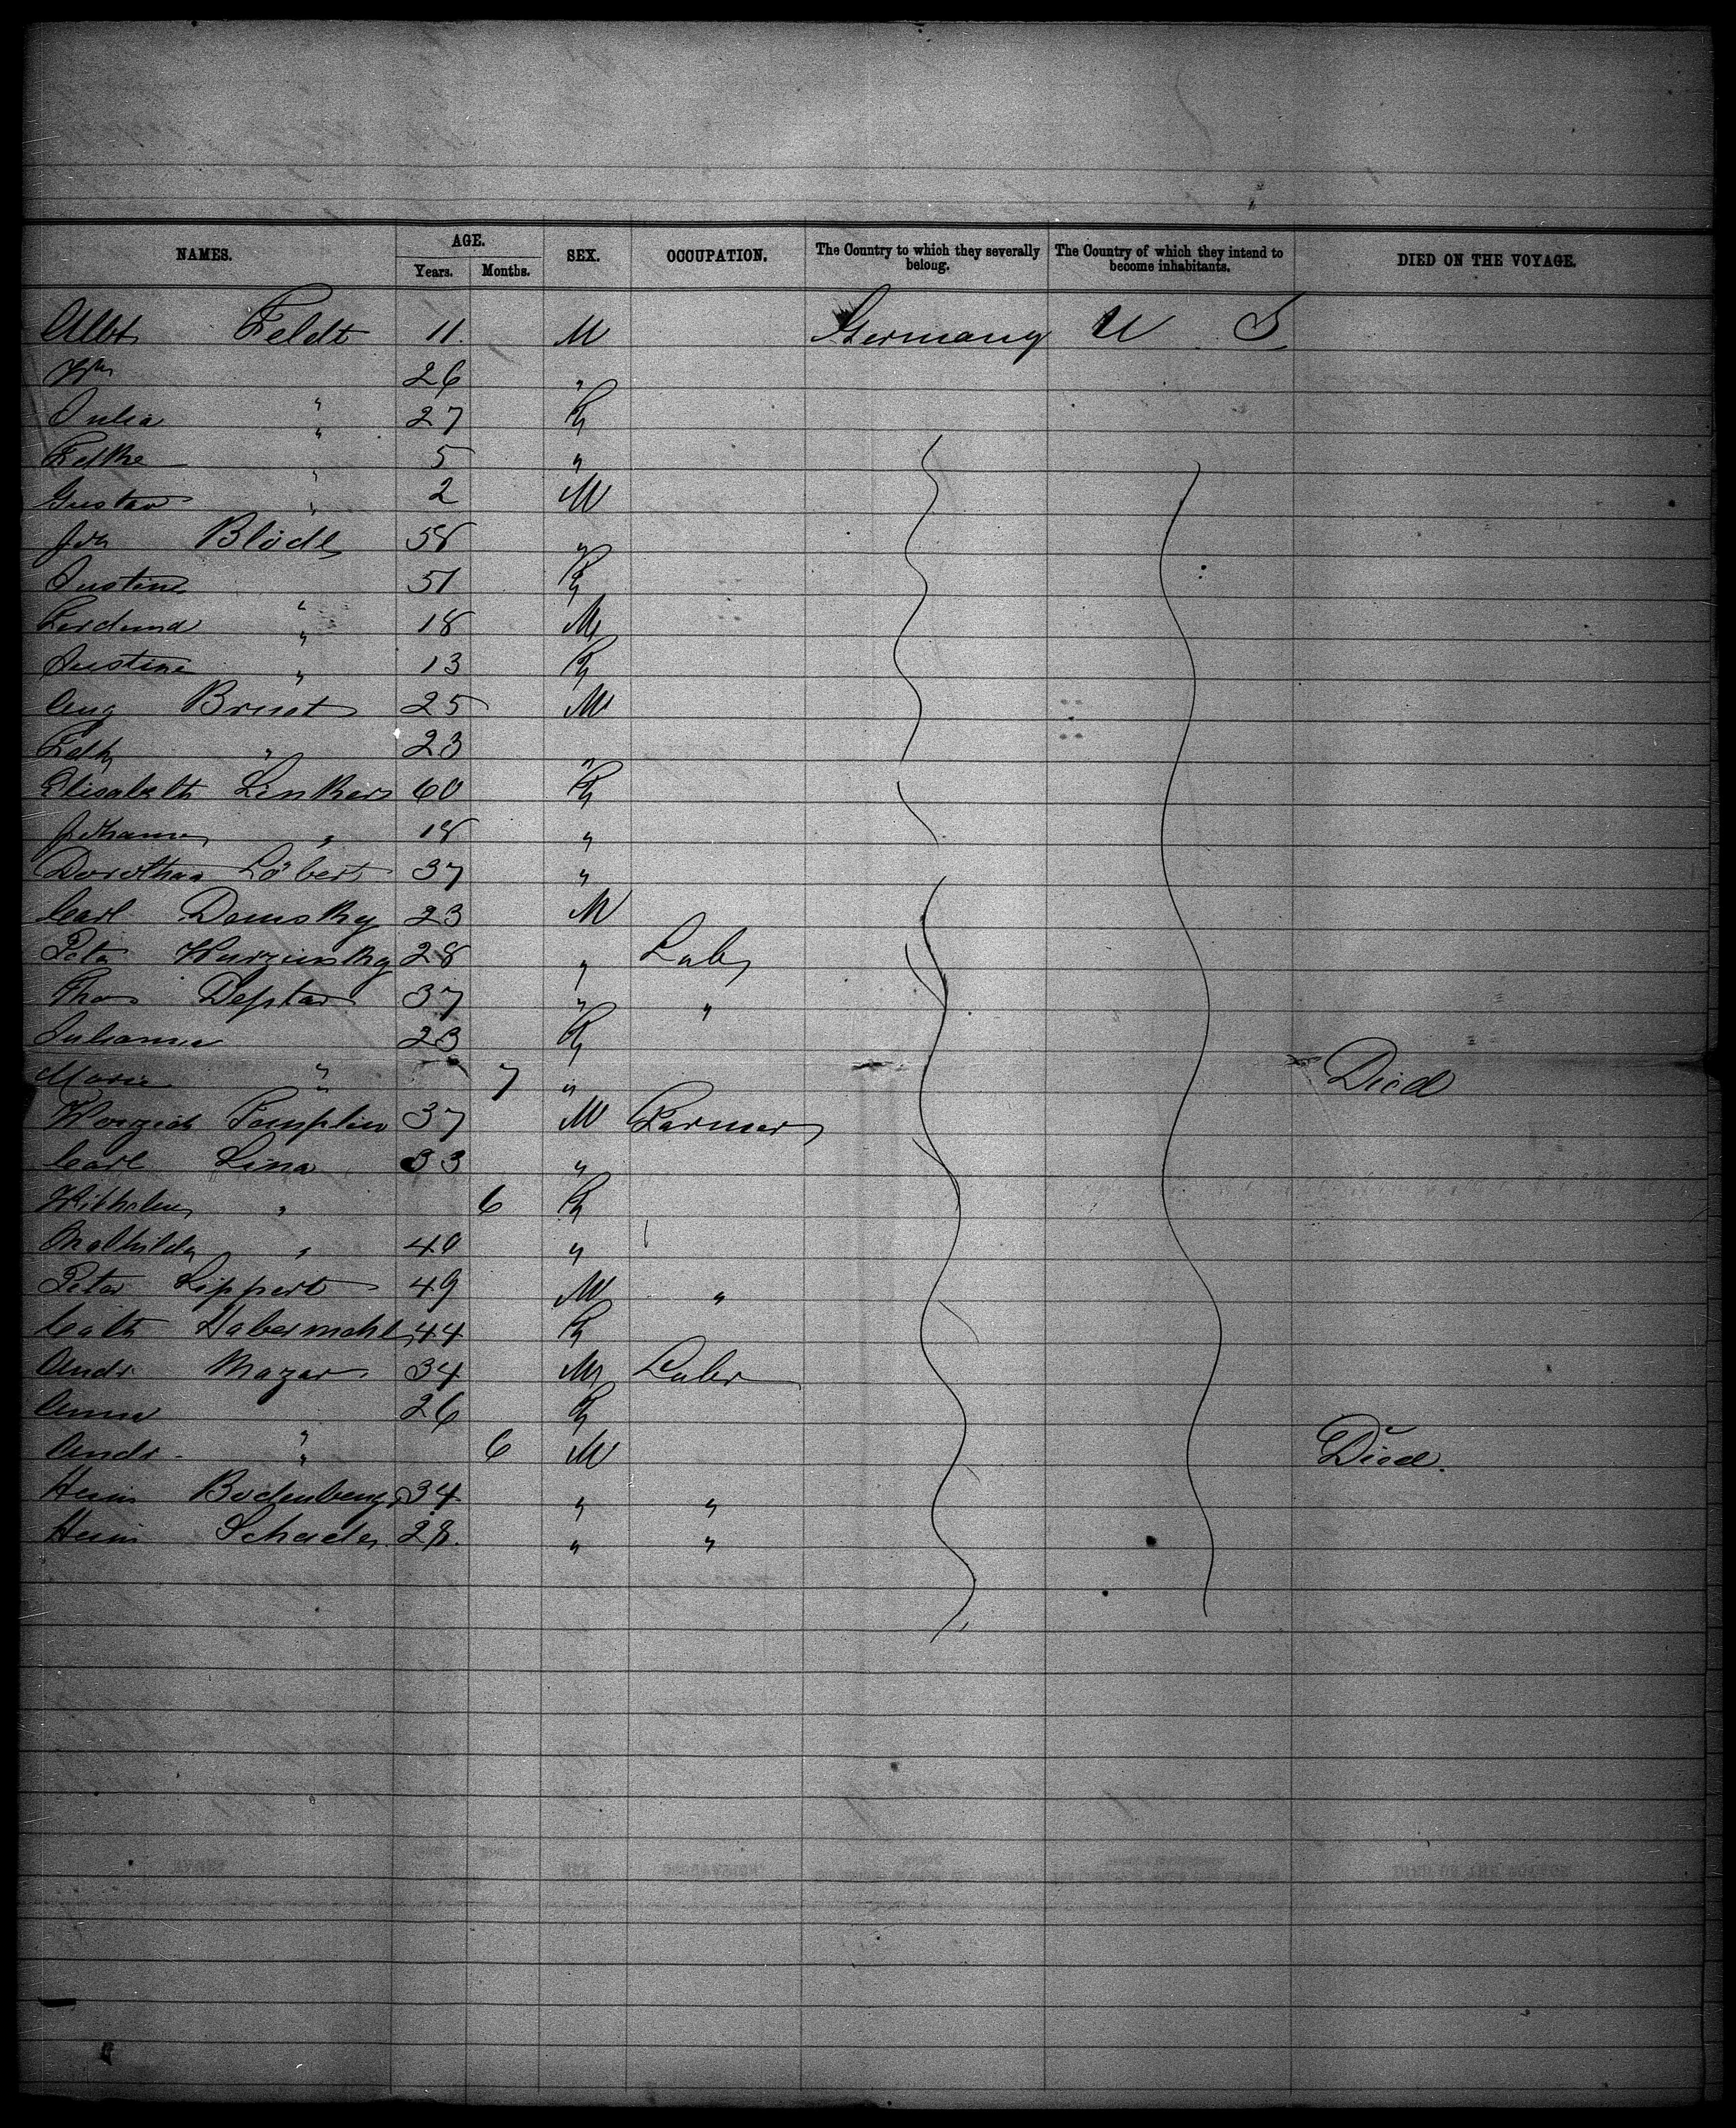 NAMES. AGE. SEX. OCCUPATION. The Country to which they severally belong. The Country of which they intend to become inhabitants. DIED ON THE VOYAGE.
Years. Months.
Albt Feldt 11. M Germany U S
Wm " 26 "
Julia " 27 F
" 5 "
Gustav " 2 M
Joh Blode 58 "
Justine " 51 F
Ferdind " 18 M
Justine " 13 F
Aug Brust 25 M
" 23 "
Elisabeth Linkers 60 F
Johanna " 18 "
Dorothea Löbert 37 "
Carl Demsky 23 M
Peter Wurzinsky 28 " Labr
Thos Deptar 37 " "
Julianna " 23 F
Maria " 7 " Died
Templin 37 M Farmer
Carl Lina 33 "
Wilhelm " 6 F
Mathilda " 40 "
Peter Lippert 49 M "
Cath Habermehl 44 F
Andr Mazar 34 M Labr
Anna " 26 F
Andr. " 6 M Died.
Heinr Bodenbeng 34 " "
Heinr Schader 28. " "